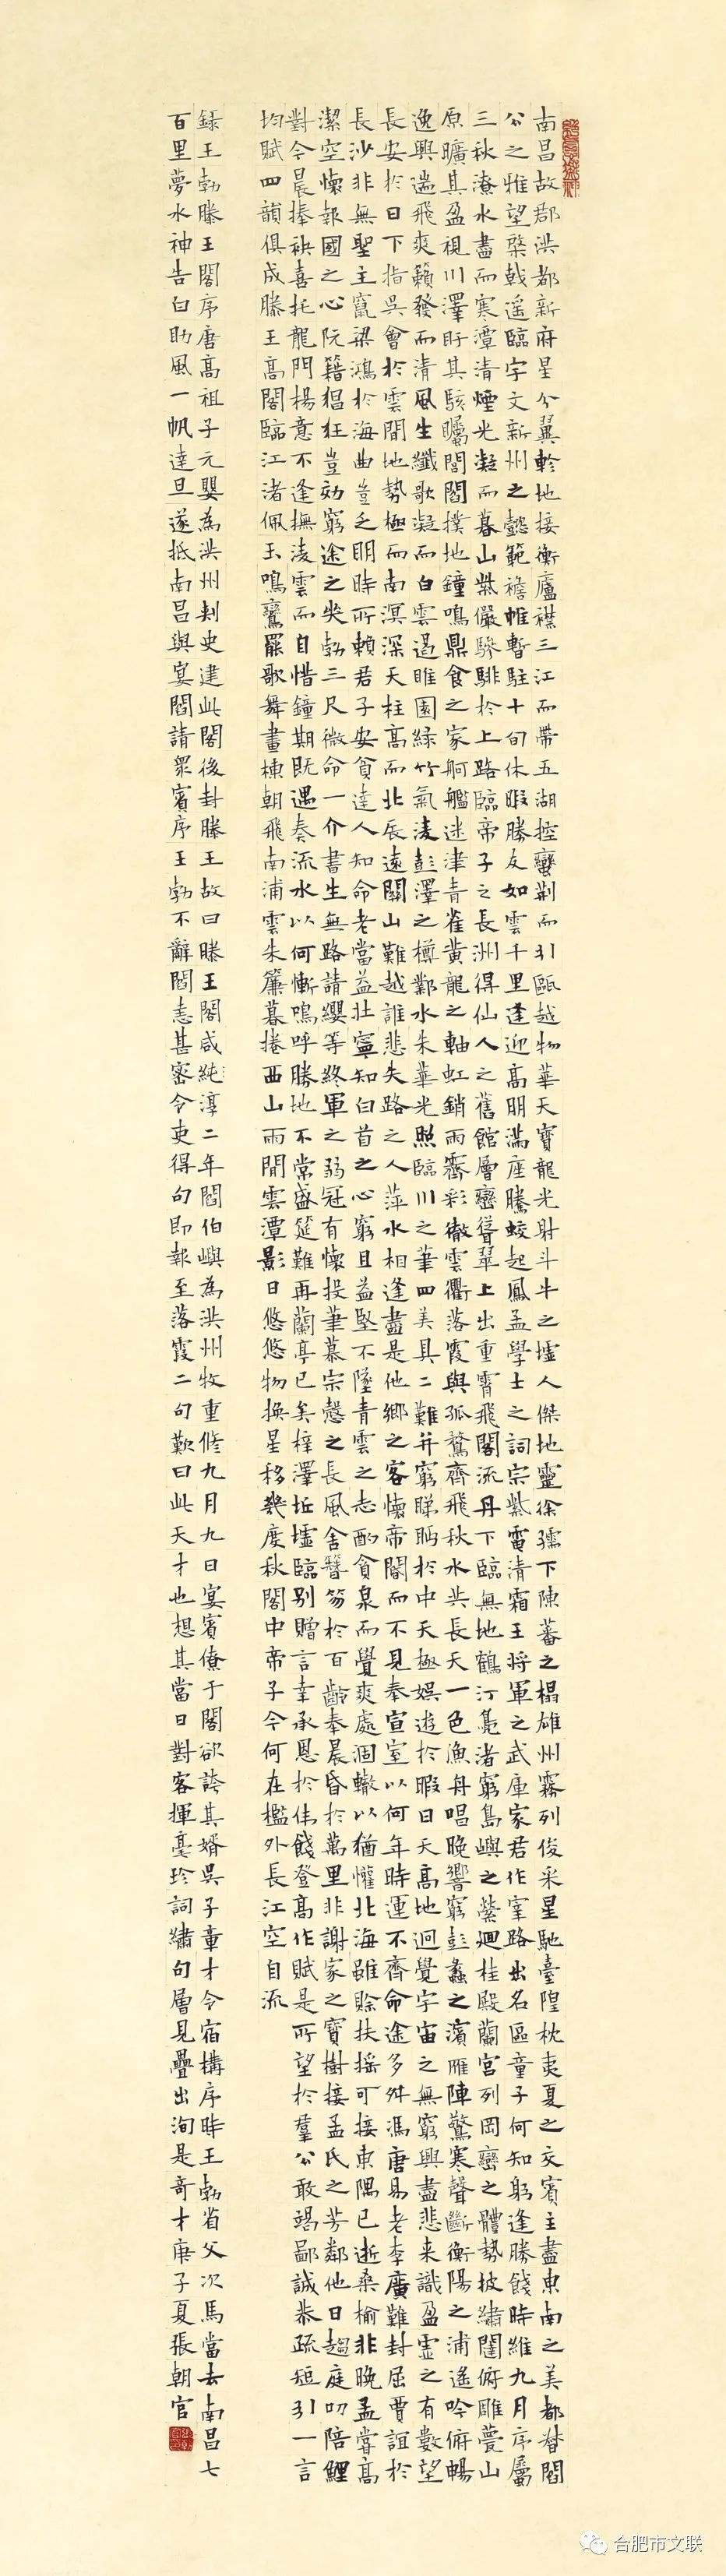 南昌故郡洪都新府星分翼軫地接衡廬襟三江而帶五湖控蠻荆而引甌越物華天寶龍光射斗牛之墟人傑地靈徐孺下陳蕃之榻雄州霧列俊采星馳臺隍枕夷夏之交賓主盡東南之美都督閻
公之雅望棨戟遥臨宇文新州之懿範襜帷暫駐十旬休暇勝友如雲千里逢迎高朋滿座騰蛟起鳳孟學士之詞宗紫電清霜王將軍之武庫家君作宰路出名區童子何知躬逢勝餞時維九月序屬
三秋潦水盡而寒潭清煙光凝而暮山紫儼驂騑於上路臨帝子之長洲得仙人之舊館層巒聳翠上出重霄飛閣流丹下臨無地鶴汀鳧渚窮島嶼之縈迴桂殿蘭宫列岡巒之體勢披繡闥俯雕甍山
原曠其盈視川澤盱其駭矚閭閻撲地鐘鳴鼎食之家舸艦迷津青雀黄龍之軸虹銷雨霽彩徹雲衢落霞與孤鶩齊飛秋水共長天一色漁舟唱晚響窮彭蠡之濱雁陣驚寒聲斷衡陽之浦遥吟俯暢
逸興遄飛爽籟發而清風生纖歌凝而白雲遏睢園緑竹氣凌彭澤之樽鄴水朱華光照臨川之筆四美具二難并窮睇眄於中天極娱遊於暇日天高地迥覺宇宙之無窮興盡悲来識盈虚之有數望
長安於日下指吴會於雲間地勢極而南溟深天柱高而北辰遠關山難越誰悲失路之人萍水相逢盡是他鄉之客懷帝閽而不見奉宣室以何年時運不齊命途多舛馮唐易老李廣難封屈賈誼於
長沙非無聖主竄梁鴻於海曲豈乏明時所賴君子安貧達人知命老當益壯寧知白首之心窮且益堅不墜青雲之志酌貪泉而覺爽處涸轍以猶懽北海雖賒扶摇可接東隅已逝桑榆非晚孟嘗高
潔空懷報國之心阮籍猖狂豈効窮途之哭勃三尺微命一介書生無路請纓等終軍之弱冠有懷投筆慕宗慤之長風舍簪笏於百齡奉晨昏於萬里非謝家之寶樹接孟氏之芳鄰他日趨庭叨陪鯉
對今晨捧袂喜托龍門楊意不逢撫凌雲而自惜鐘期既遇奏流水以何慚嗚呼勝地不常盛筵難再蘭亭已矣梓澤坵墟臨别贈言幸承恩於偉餞登高作賦是所望於羣公敢竭鄙誠恭疏短引一言
均賦四韻俱成滕王高閣臨江渚佩玉鳴鸞罷歌舞畫棟朝飛南浦雲朱簾暮捲西山雨閒雲潭影日悠悠物换星移幾度秋閣中帝子今何在檻外長江空自流
録王勃滕王閣序唐高祖子元嬰為洪州刺史建此閣後封滕王故曰滕王閣咸純淳二年閻伯嶼為洪州牧重修九月九日宴賓僚于閣欲誇其婿吴子章才令宿構序時王勃省父次馬當去南昌七
百里夢水神告曰助風一帆達旦遂抵南昌與宴閻請衆賓序王勃不辭閻恚甚密令吏得句即報至落霞二句歎曰此天才也想其當日對客揮毫珍詞繡句層見疊出洵是奇才庚子夏張朝官
合肥市文联